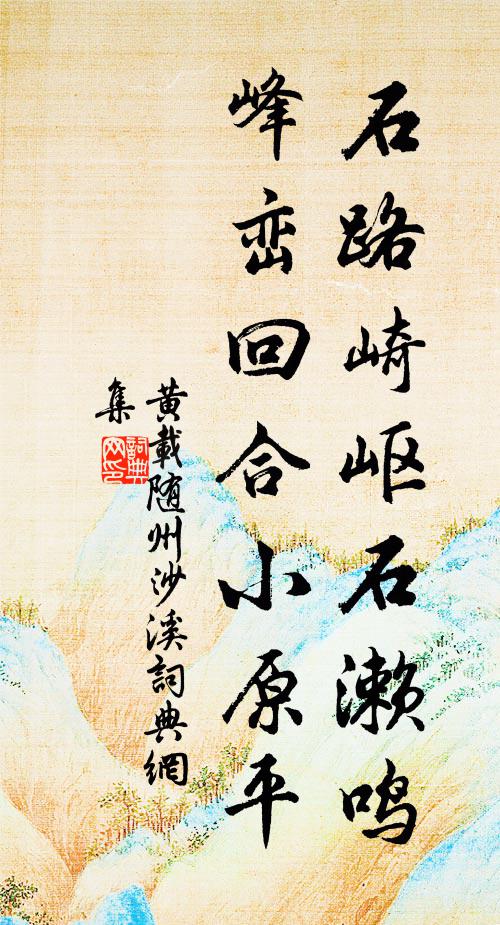 石路崎岖石濑鸣
峰峦回合小原平
黄載随州沙溪詞典網
集
詞典网印